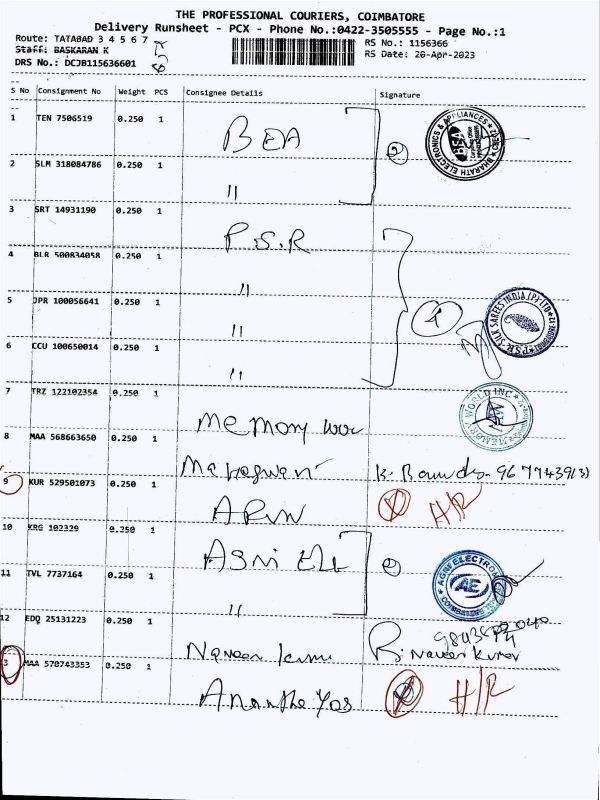 THE PROFESSIONAL COURIERS, COIMBATORE
Delivery Runsheet - PCX - Phone No.:0422-3505555 - Page No.:1
Route: TATABAD 3 4 5 6 7
Staff: BASKARAN K
DRS No.: DCJB115636601
RS No.: 1156366
RS Date: 20-Apr-2023
S No Consignment No Weight PCS Consignee Details Signature
1 TEN 7506519 0.250 1 BEA 2
BHARATH ELECTRONICS & APPLIANCES
2 SLM 318084786 0.250 1 "
3 SRT 14931190 0.250 1 P.S.R
4 BLR 500834058 0.250 1 "
5 JPR 100056641 0.250 1 " 4
P.S.R. SILK SAREES INDIA (P) LTD
6 CCU 100650014 0.250 1 "
7 TRZ 122102354 0.250 1 Memory
MEMORY WORLD INC
8 MAA 568663650 0.250 1
9 KUR 529501073 0.250 1 H/R
10 KRG 102329 0.250 1
11 TVL 7737164 0.250 1 " 2
AGNI ELECTRON
AE
COIMBATORE
12 EDQ 25131223 0.250 1 Naveen Kumar
13 MAA 570743353 0.250 1 H/R